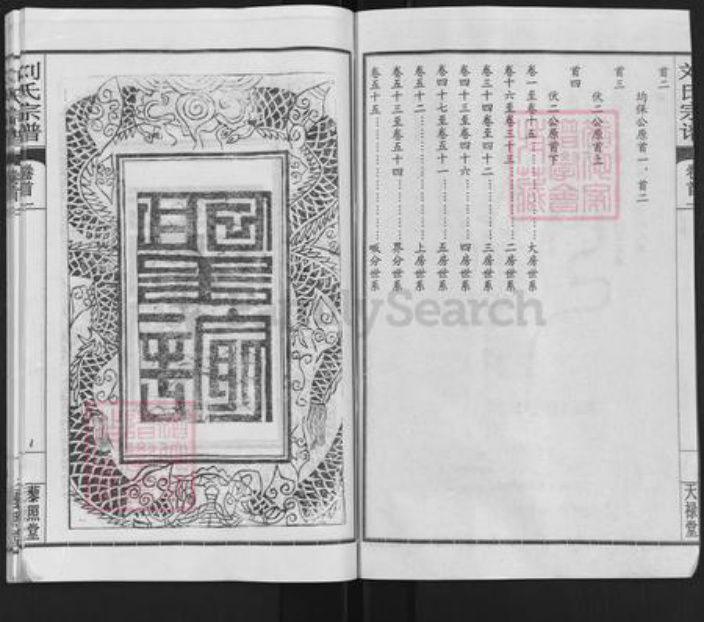 首二
均保公原首一、首二
首三
伏二公原首上
首四
伏二公原首下
卷一至卷十五……大房世系
卷十六至卷三十三……二房世系
卷三十四卷至四十二……三房世系
卷四十三至卷四十六……四房世系
卷四十七至卷五十一……五房世系
卷五十二……上房世系
卷五十三至卷五十四……界分世系
卷五十五……城分世系
天禄堂
刘氏宗谱
卷首一
1
藜照堂
FamilySearch